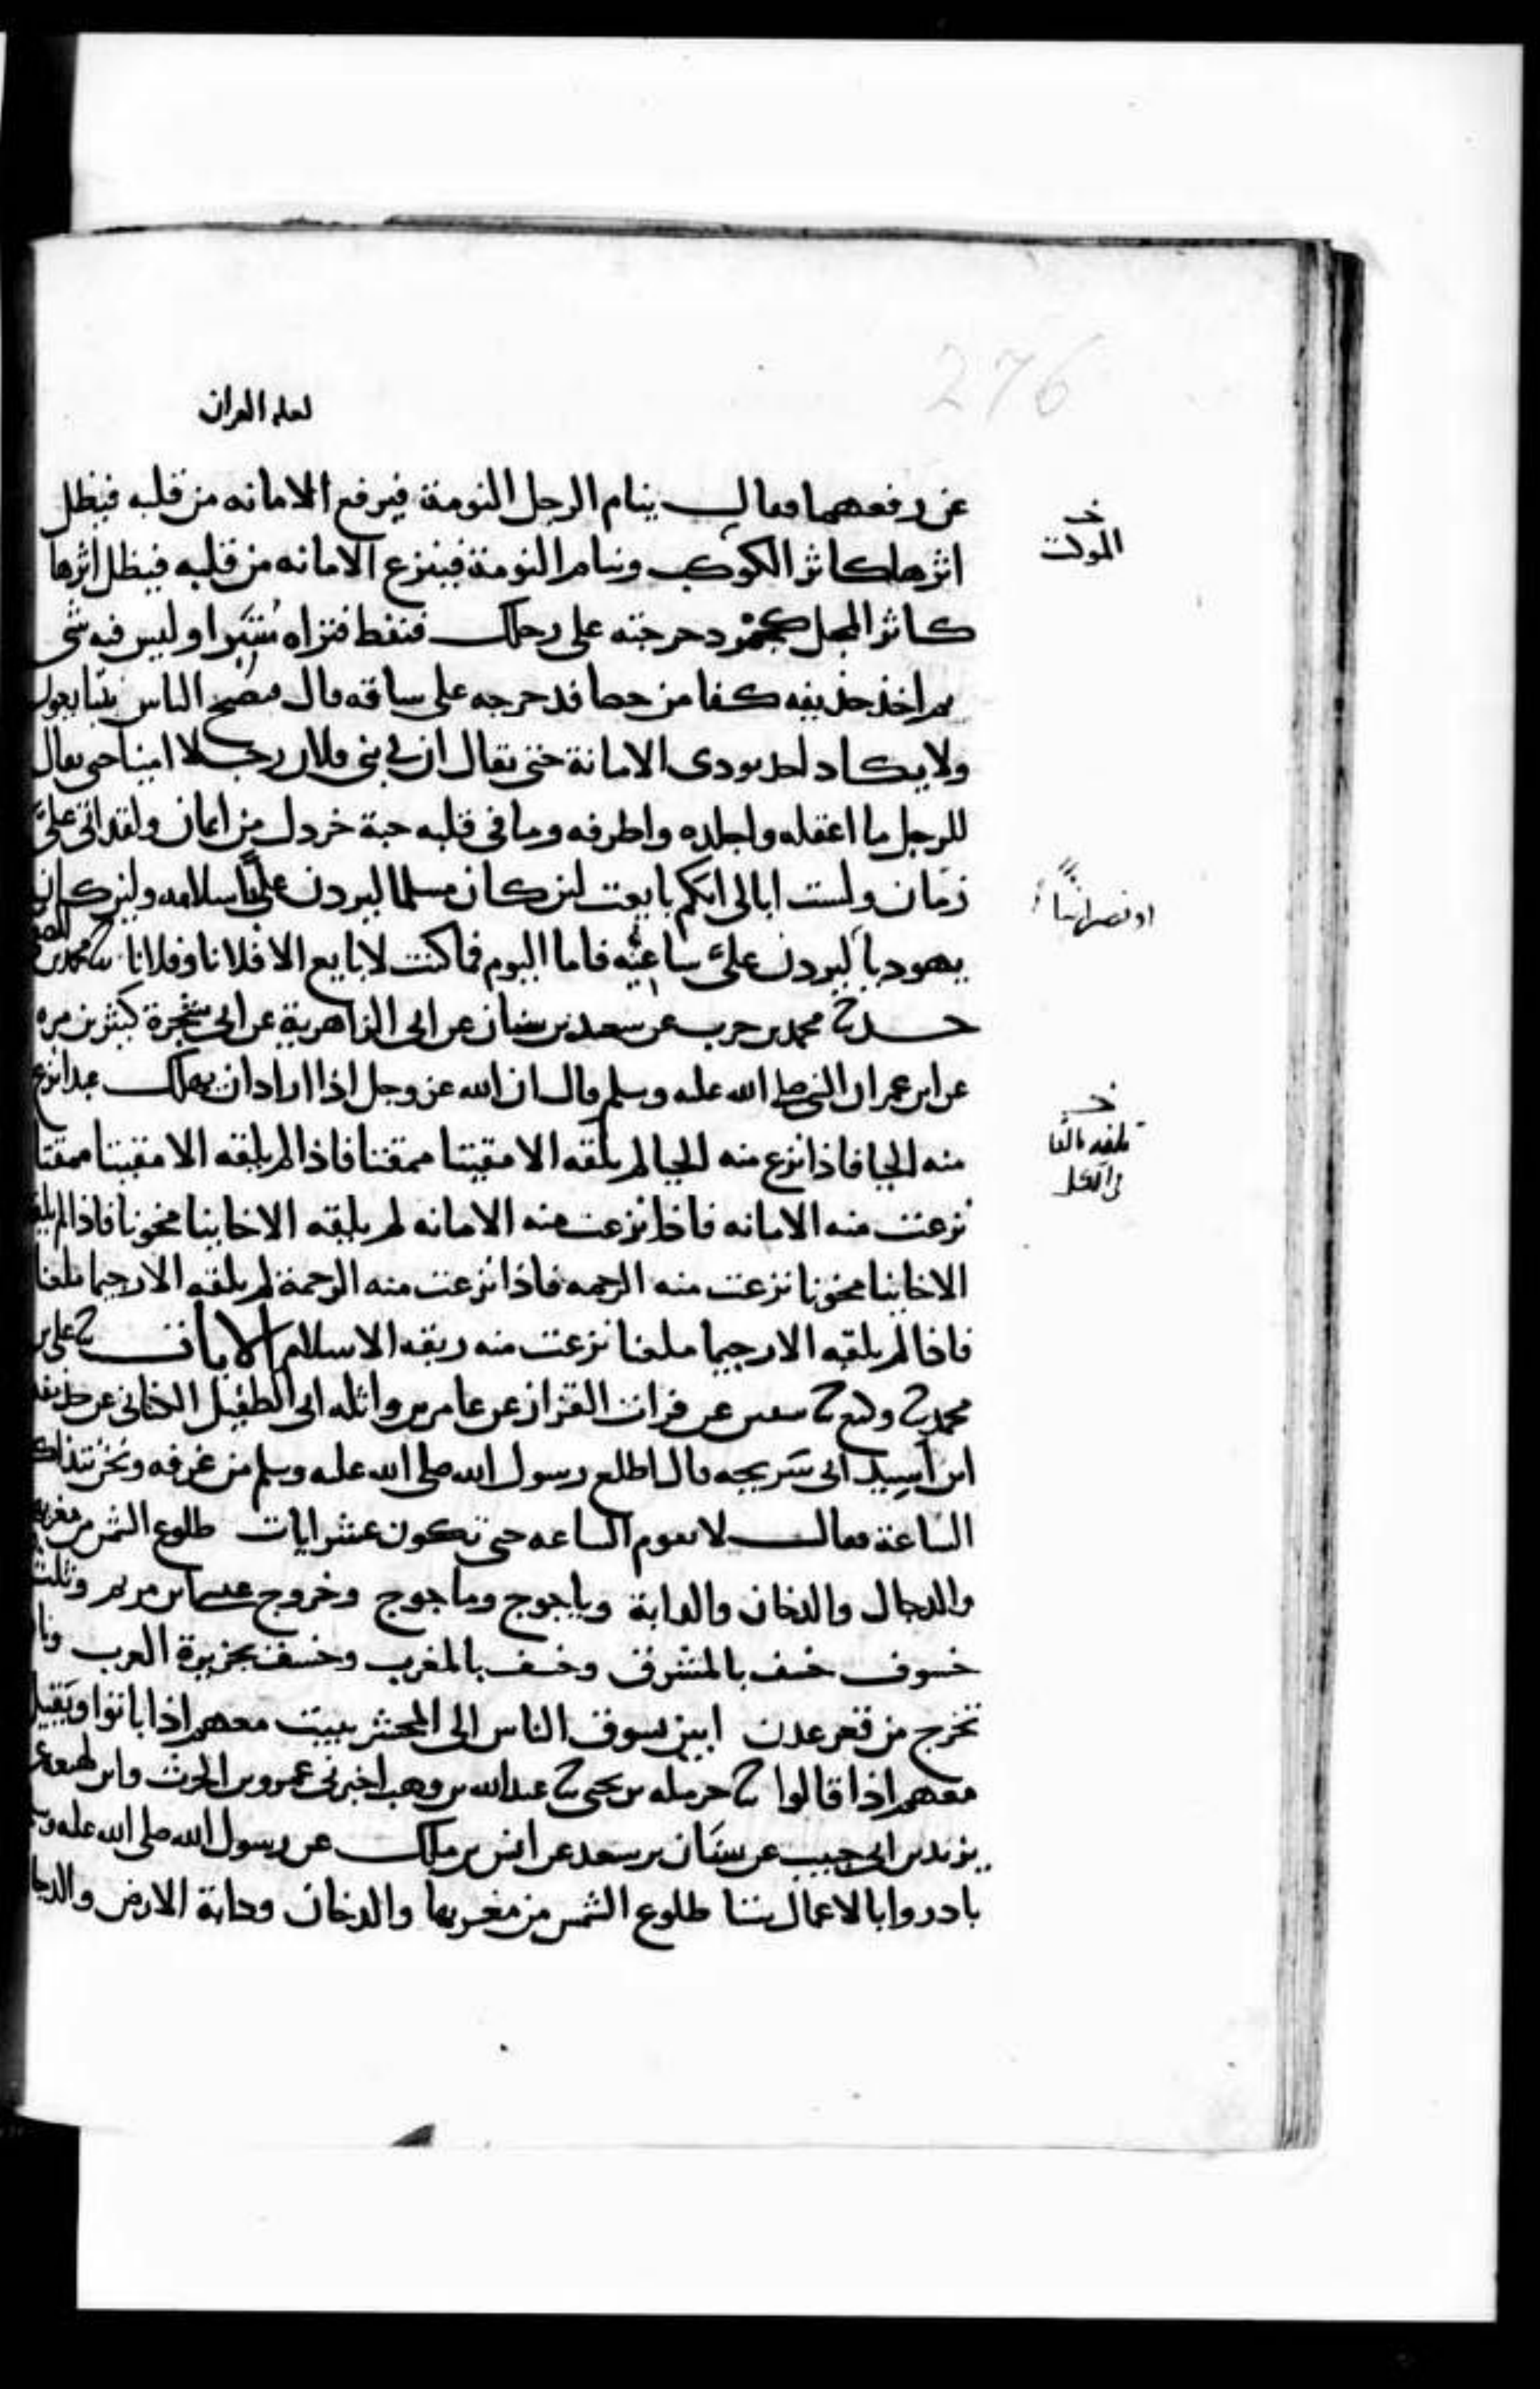 276
لعله القران
عن رفعهما فقال ينام الرجل النومة فيرفع الامانه من قلبه فيظل
خ
الموكت
اثرها كاثر الكوكب وينام النومة فينزع الامانه من قلبه فيظل اثرها
كاثر المجل كجمر دحرجته على رجلك فنفط فتراه منتبرا وليس فيه شى
ثم اخذ حذيفه كفا من حصا فدحرجه على ساقه قال فيصبح الناس يتبايعون
ولا يكاد احد يودى الامانة حتى يقال ان في بنى فلان رجلا امينا حتى يقال
للرجل ما اعقله واجلده واظرفه وما في قلبه حبة خردل من ايمان ولقد اتى على
زمان ولست ابالى ايكم بايعت لئن كان مسلما ليردن على اسلامه ولين كان
او نصرانيا
يهوديا ليردن على ساعيه فاما اليوم فما كنت لابايع الا فلانا وفلانا ثنا محمد بن المصفى
حدثنا محمد بن حرب عن سعيد بن سنان عن ابى الزاهرية عن ابى شجرة كثير بن مره
عن ابن عمر ان النبى صلى الله عليه وسلم قال ان الله عز وجل اذا اراد ان يهلك عبدا نزع
خ
تلفه بالفا
في الكل
منه الحيا فاذا نزع منه الحيا لم يلقه الا مقيتا ممقتا فاذا لم يلقه الا مقيتا ممقتا
نزعت منه الامانه فاذا نزعت منه الامانه لم يلقه الا خاينا مخونا فاذا لم يلقه
الا خاينا مخونا نزعت منه الرحمه فاذا نزعت منه الرحمة لم يلقه الا رجيما ملعنا
فاذا لم يلقه الا رجيما ملعنا نزعت منه ربقه الاسلام الايات ثنا على بن
محمد ثنا وكيع ثنا سفين عن فرات القزاز عن عامر بن واثله ابى الطفيل الكنانى عن حذيفه
ابن اسيد ابى سريحه قال اطلع رسول الله صلى الله عليه وسلم من غرفه ونحن نتذاكر
الساعة فقال لا تقوم الساعه حتى تكون عشر ايات طلوع الشمس من مغربها
والدجال والدخان والدابة وياجوج وماجوج وخروج عيسى بن مريم وثلث
خسوف خسف بالمشرق وخسف بالمغرب وخسف بجزيرة العرب ونار
تخرج من قعر عدن ابين تسوق الناس الى المحشر تبيت معهم اذا باتوا وتقيل
معهم اذا قالوا ثنا حرمله بن يحيى ثنا عبد الله بن وهب اخبرنى عمرو بن الحرث وابن لهيعه عن
يزيد بن ابى حبيب عن سنان بن سعد عن انس بن ملك عن رسول الله صلى الله عليه وسلم
بادروا بالاعمال ستا طلوع الشمس من مغربها والدخان ودابة الارض والدجال